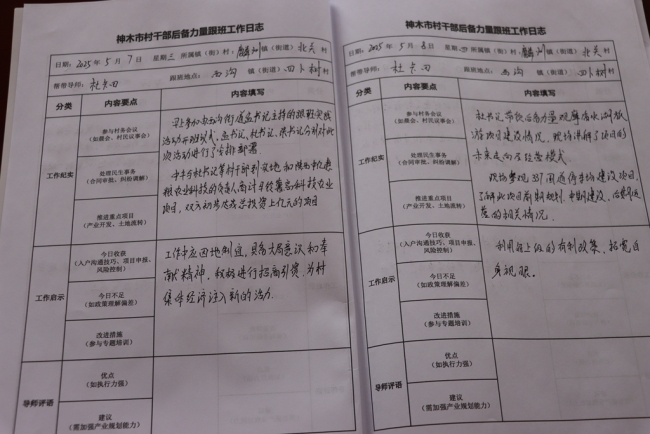 神木市村干部后备力量跟班工作日志
日期：2025年5月7日 星期三 所属镇（街）村：麟州镇（街道）北关村
帮带导师：杜 跟班地点：西沟镇（街道）四卜树村
分类 内容要点 内容填写
工作纪实
参与村务会议
（如晨会、村民议事会）
处理民生事务
（合同审批、纠纷调解）
推进重点项目
（产业开发、土地流转）
上午参加西沟街道孟书记主持的跟班实践
活动开班仪式，孟书记、杜书记、书记分别对此
次活动进行了安排部署
中午与杜书记等村干部到实地和陕西
粮农业科技的负责人商讨
项目，双方初步达成总投资上亿元的项目
工作启示
今日收获
（入户沟通技巧、项目申报、
风险控制）
今日不足
（如政策理解偏差）
改进措施
（参与专题培训）
工作中应因地制宜，具备大局意识和奉
献精神，积极进行招商引资，为村
集体经济注入新的活力
导师评语
优点
（如执行力强）
建议
（需加强产业规划能力）
神木市村干部后备力量跟班工作日志
日期：2025年5月8日 星期四 所属镇（街）村：麟州镇（街道）北关村
帮带导师：杜 跟班地点：西沟镇（街道）四卜树村
分类 内容要点 内容填写
工作纪实
参与村务会议
（如晨会、村民议事会）
处理民生事务
（合同审批、纠纷调解）
推进重点项目
（产业开发、土地流转）
杜书记带领后备力量观摩
项目建设情况，现场讲解了项目的
未来走向及经营模式
现场参观 建设项目，
了解此项目前期规划，中期建设，后期运
营的相关情况。
工作启示
今日收获
（入户沟通技巧、项目申报、
风险控制）
今日不足
（如政策理解偏差）
改进措施
（参与专题培训）
利用好上级的有利政策，拓宽自
身视眼。
导师评语
优点
（如执行力强）
建议
（需加强产业规划能力）